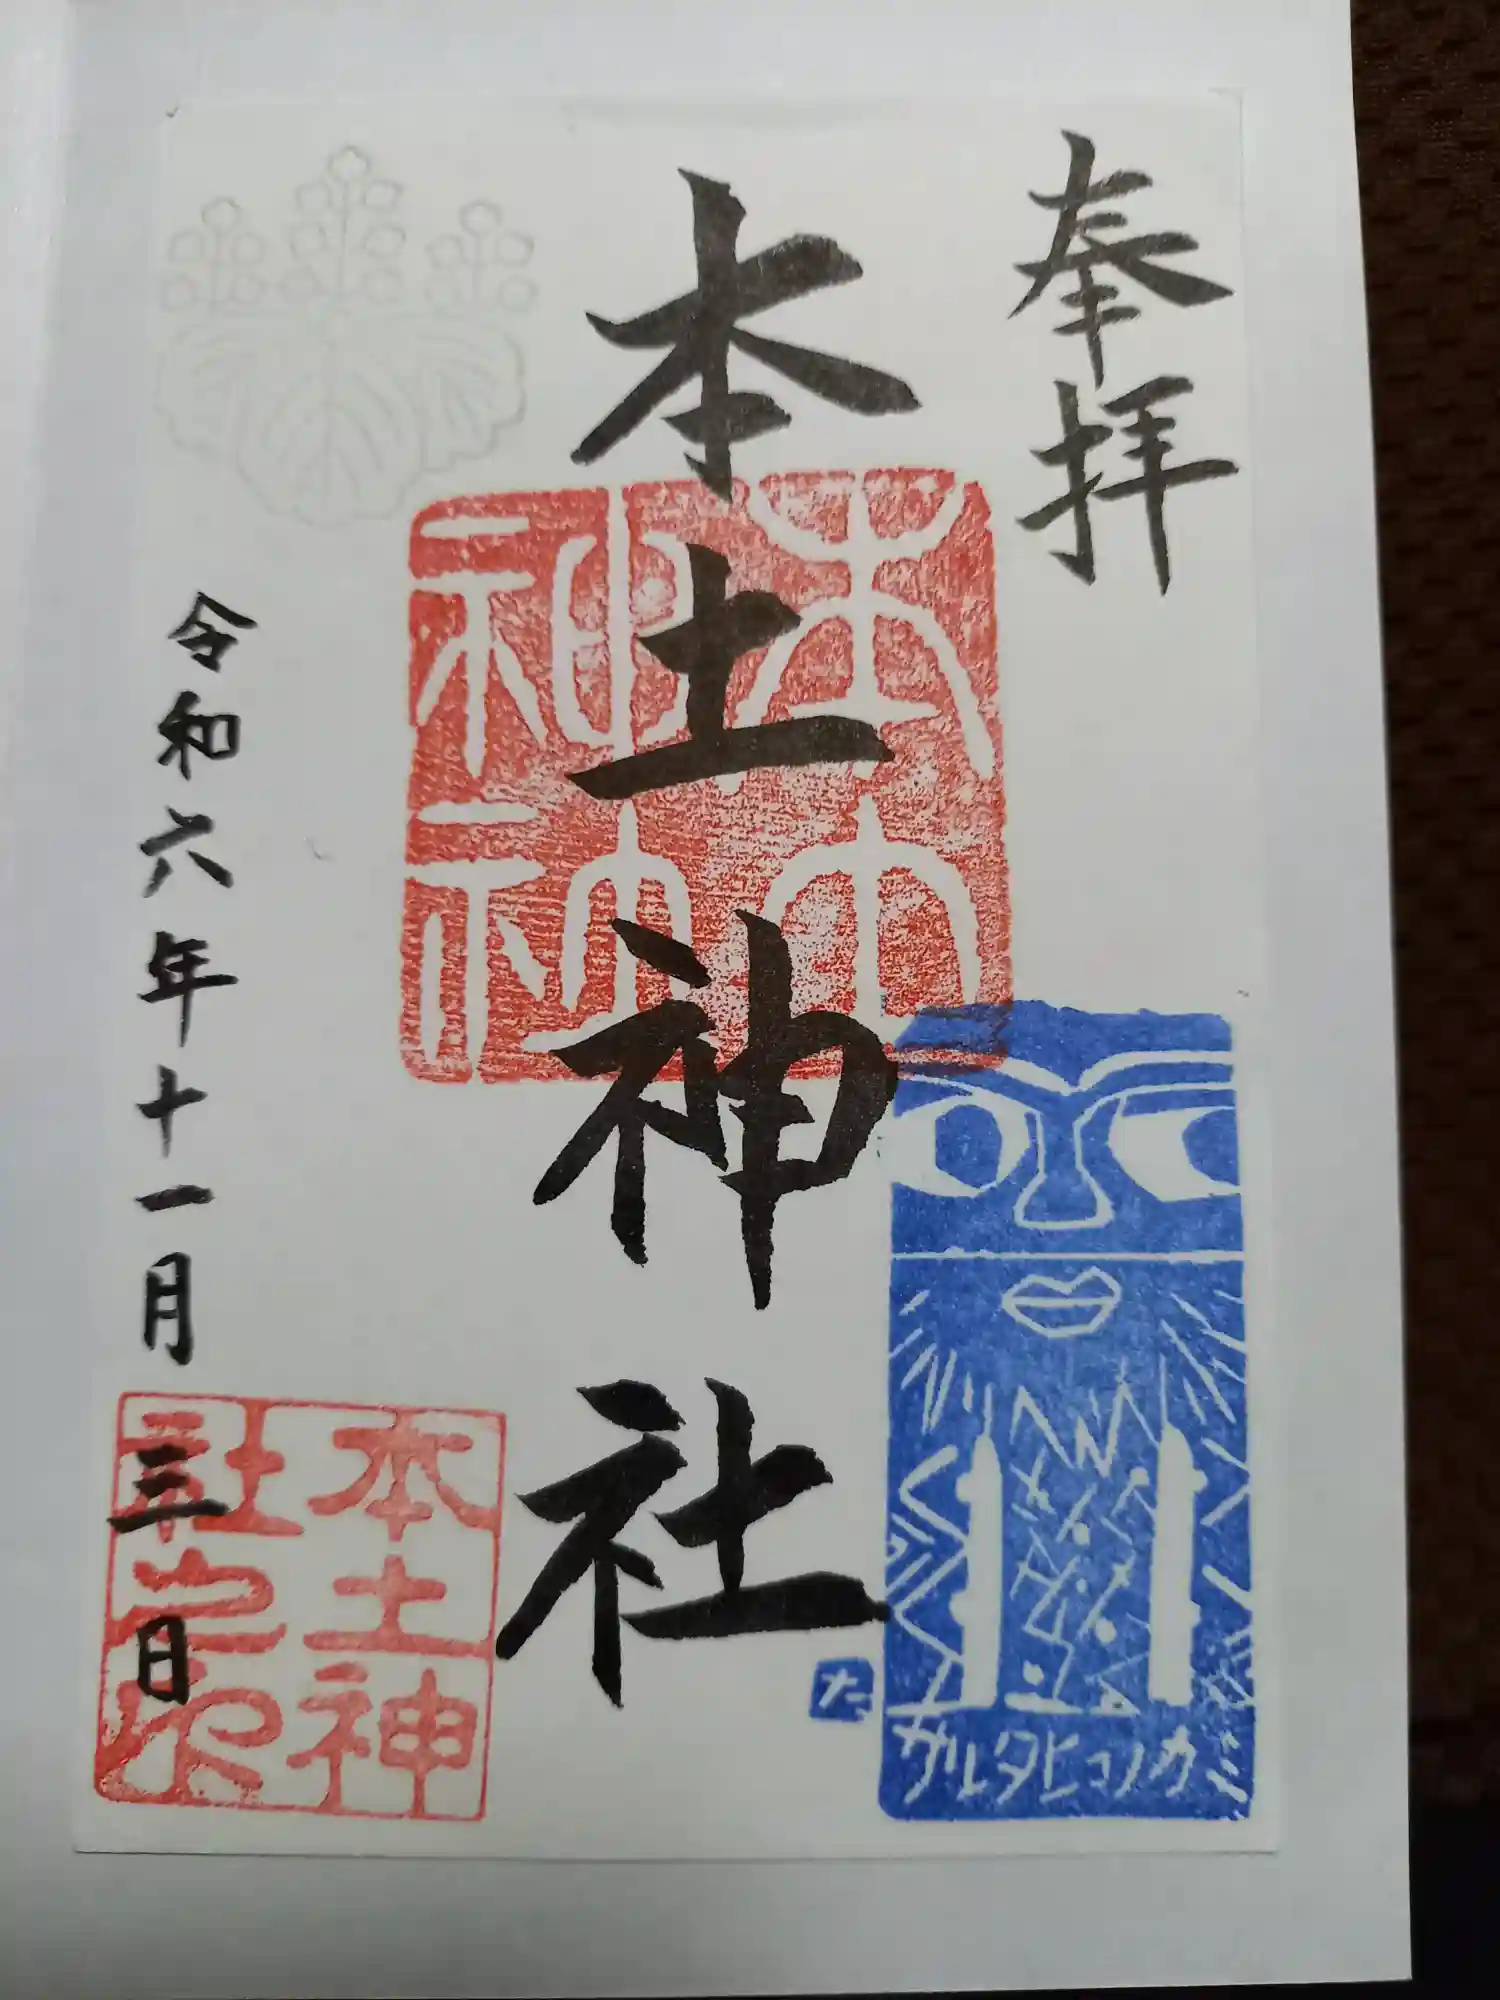 奉拝
本土神社
本土神社
サルタヒコノカミ
た
令和六年十一月三日
本土神
社之印